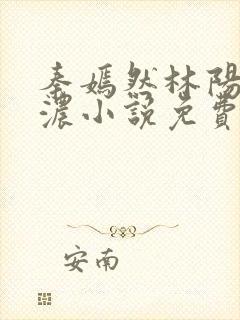 秦嫣然林陽
濃小說免費
安南